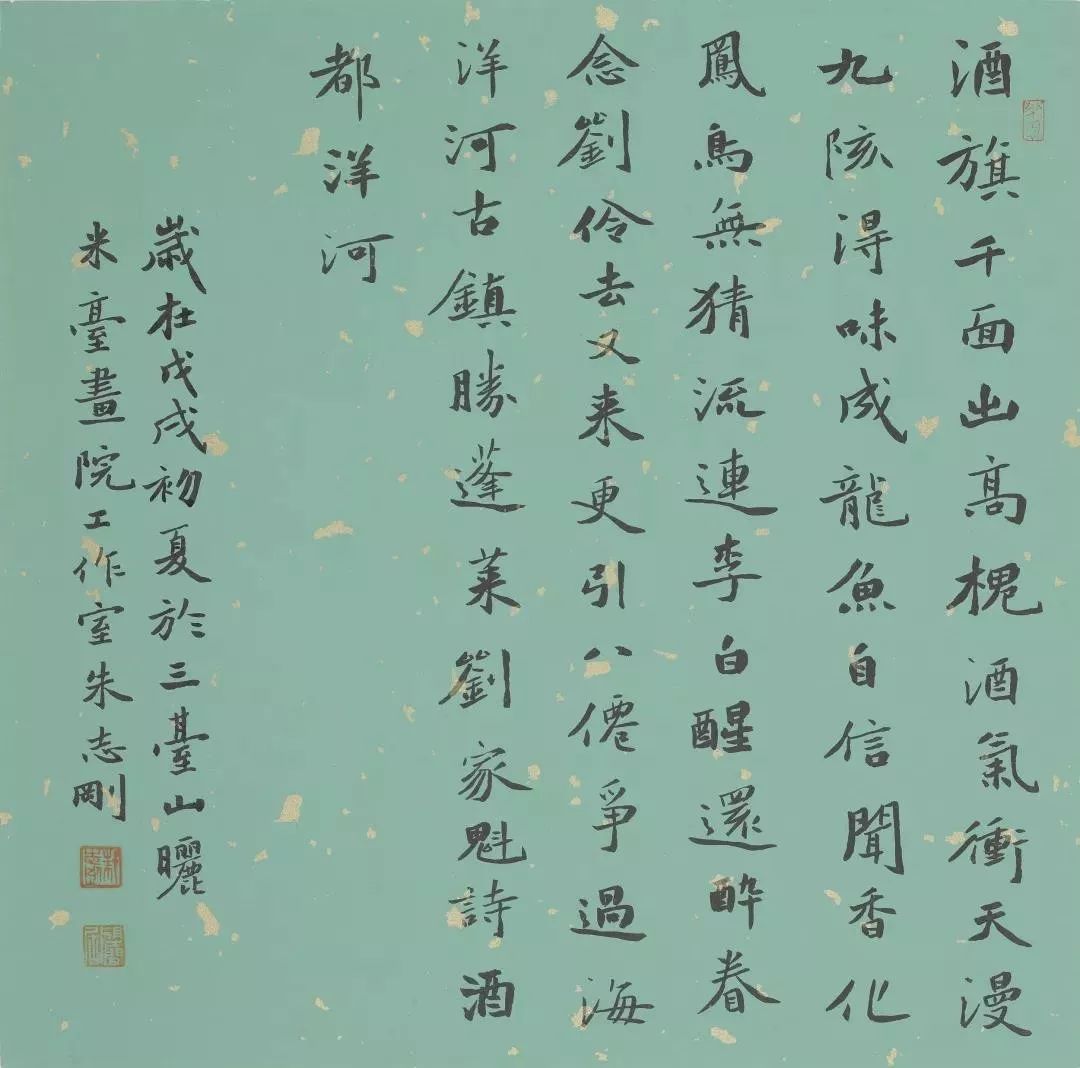 酒旗千面出高槐酒氣衝天漫
九陔得味成龍魚自信聞香化
鳳鳥無猜流連李白醒還醉眷
念劉伶去又来更引八僊爭過海
洋河古鎮勝蓬莱劉家魁詩酒
都洋河
歲在戊戌初夏於三臺山曬
米臺畫院工作室朱志剛